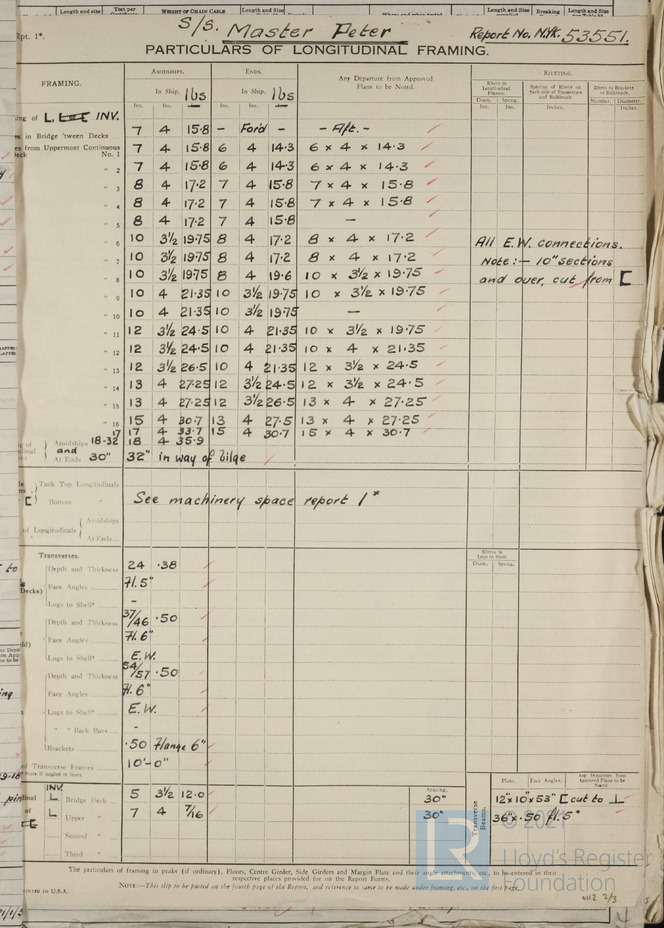 S/s. Master Peter
Rpt. 1*.
Report No. N.Yk. 53551.
PARTICULARS OF LONGITUDINAL FRAMING.
FRAMING. AMIDSHIPS. ENDS. Any Departure from Approved Plans to be Noted. RIVETING.
In Ship. lbs In Ship. lbs
Ins. Ins. Ins. Ins.
Rivets in Longitudinal Flanges. Spacing of Rivets on each side of Transverses and Bulkheads Rivets in Brackets to Bulkheads.
Diam. Spcng. Number. Diameter.
Ins. Ins. Inches. Inches.
ing of L. INV.
es in Bridge 'tween Decks 7 4 15.8 - Ford - - Aft. -
es from Uppermost Continuous Deck No. 1 7 4 15.8 6 4 14.3 6 x 4 x 14.3
" 2 7 4 15.8 6 4 14.3 6 x 4 x 14.3
" 3 8 4 17.2 7 4 15.8 7 x 4 x 15.8
" 4 8 4 17.2 7 4 15.8 7 x 4 x 15.8
" 5 8 4 17.2 7 4 15.8 —
" 6 10 3½ 19.75 8 4 17.2 8 x 4 x 17.2
" 7 10 3½ 19.75 8 4 17.2 8 x 4 x 17.2
" 8 10 3½ 19.75 8 4 19.6 10 x 3½ x 19.75
" 9 10 4 21.35 10 3½ 19.75 10 x 3½ x 19.75
" 10 10 4 21.35 10 3½ 19.75 —
" 11 12 3½ 24.5 10 4 21.35 10 x 3½ x 19.75
" 12 12 3½ 24.5 10 4 21.35 10 x 4 x 21.35
" 13 12 3½ 26.5 10 4 21.35 12 x 3½ x 24.5
" 14 13 4 27.25 12 3½ 24.5 12 x 3½ x 24.5
" 15 13 4 27.25 12 3½ 26.5 13 x 4 x 27.25
" 16 15 4 30.7 13 4 27.5 13 x 4 x 27.25
17 17 4 33.7 15 4 30.7 15 x 4 x 30.7
Amidships 18-32 18 4 35.9
and
At Ends 30" 32" in way of bilge
All E.W. connections.
Note:- 10" sections
and over, cut from [
Tank Top Longitudinals
[ Bottom "
See machinery space report 1*
of Longitudinals Amidships
At Ends
Transverses.
Rivets in Lugs to Shell.
Diam. Spcng.
Depth and Thickness 24 .38
Decks) Face Angles fl. 5"
Lugs to Shell* -
Depth and Thickness 37/46 .50
Face Angles fl. 6"
Lugs to Shell* E.W.
Depth and Thickness 54/57 .50
Face Angles fl. 6"
Lugs to Shell* E.W.
" " Back Bars -
Brackets .50 Flange 6"
of Transverse Frames 10'-0"
Spacing. Transverse Beams. Plate. Face Angles. Any Departure from Approved Plans to be Noted.
INV.
L Bridge Deck 5 3½ 12.0 30" 12"x10"x53" [ cut to ⊥
L Upper " 7 4 7/16 30" 36 x .50 fl. 5"
Second "
Third "
© 2021
Lloyd's Register
Foundation
The particulars of framing in peaks (if ordinary), Floors, Centre Girder, Side Girders and Margin Plate and their angle attachments, etc., to be entered in their
respective places provided for on the Report Forms.
NOTE:—This slip to be pasted on the fourth page of the Report, and reference to same to be made under framing, etc., on the first page.
PRINTED IN U.S.A.
0112 2/3